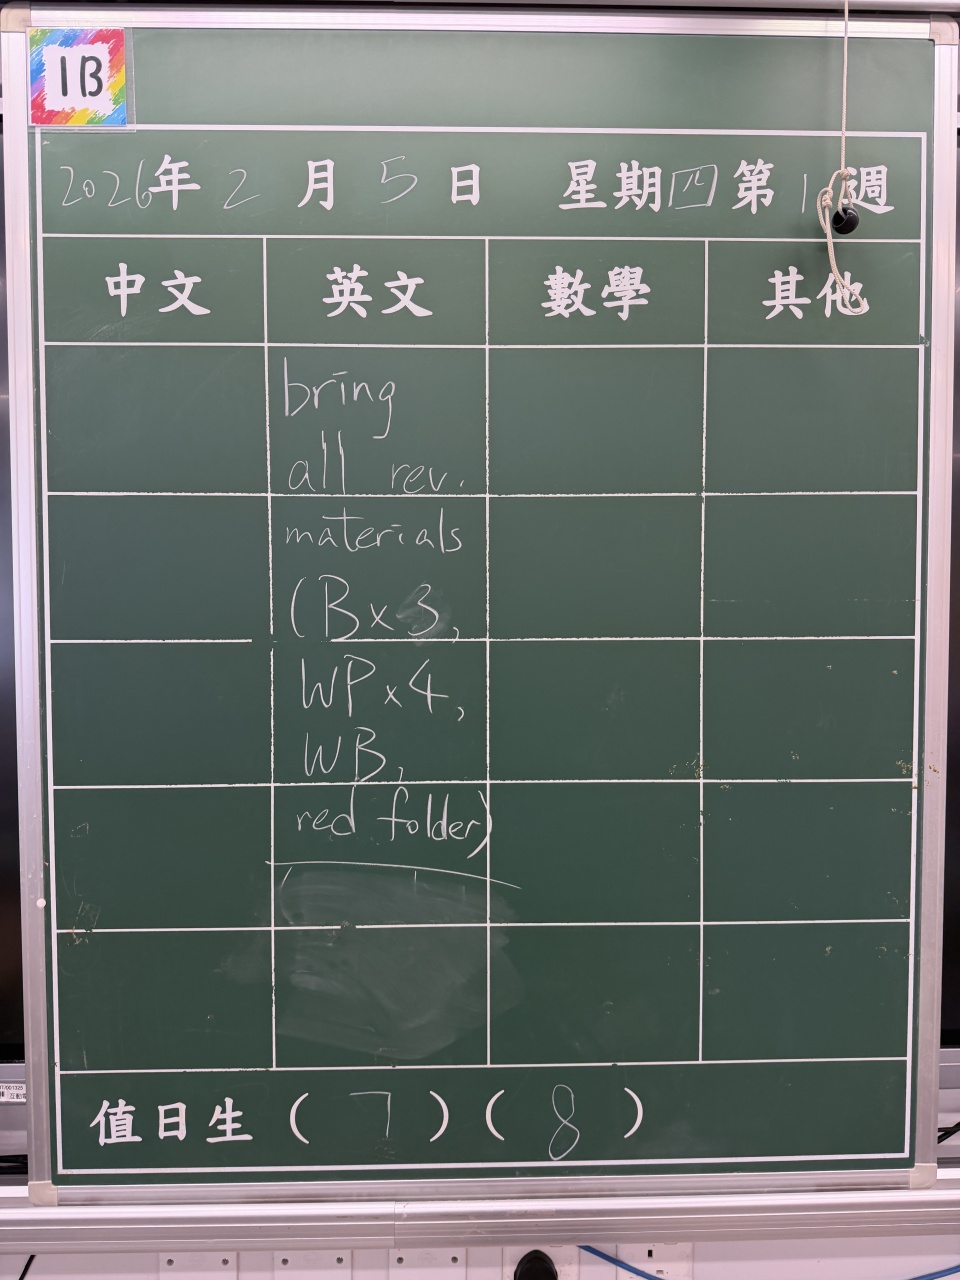 1B
2026年 2 月 5 日 星期四 第 1 週
中文 英文 數學 其他
bring
all rev.
materials
(B x 3,
WP x 4,
WB,
red folder)
值日生 ( 7 ) ( 8 )